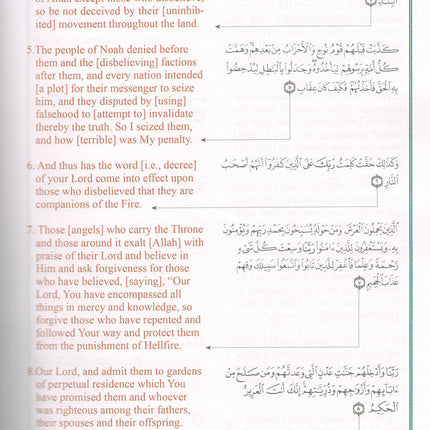 so be not deceived by their [uninhib-
ited] movement throughout the land.
5.The people of Noah denied before
them and the [disbelieving] factions
after them, and every nation intended
[a plot] for their messenger to seize
him, and they disputed by [using]
falsehood to [attempt to] invalidate
thereby the truth. So I seized them,
and how [terrible] was My penalty.
6. And thus has the word [i.e., decree]
of your Lord come into effect upon
those who disbelieved that they are
companions of the Fire.
7. Those [angels] who carry the Throne
and those around it exalt [Allah] with
praise of their Lord and believe in
Him and ask forgiveness for those
who have believed, [saying], “Our
Lord, You have encompassed all
things in mercy and knowledge, so
forgive those who have repented and
followed Your way and protect them
from the punishment of Hellfire.
8.Our Lord, and admit them to gardens
of perpetual residence which You
have promised them and whoever
was righteous among their fathers,
their spouses and their offspring.
كَذَّبَتْ قَبْلَهُمْ قَوْمُ نُوحٍ وَالْأَحْزَابُ مِنْ بَعْدِهِمْ وَهَمَّتْ
كُلُّ أُمَّةٍ بِرَسُولِهِمْ لِيَأْخُذُوهُ وَجَادَلُوا بِالْبَاطِلِ لِيُدْحِضُوا
بِهِ الْحَقَّ فَأَخَذْتُهُمْ فَكَيْفَ كَانَ عِقَابِ
٥
وَكَذَلِكَ حَقَّتْ كَلِمَتُ رَبِّكَ عَلَى الَّذِينَ كَفَرُوا أَنَّهُمْ أَصْحَابُ
النَّارِ ٦
الَّذِينَ يَحْمِلُونَ الْعَرْشَ وَمَنْ حَوْلَهُ يُسَبِّحُونَ بِحَمْدِ رَبِّهِمْ وَيُؤْمِنُونَ
بِهِ وَيَسْتَغْفِرُونَ لِلَّذِينَ ءَامَنُوا رَبَّنَا وَسِعْتَ كُلَّ شَيْءٍ
رَحْمَةً وَعِلْمًا فَاغْفِرْ لِلَّذِينَ تَابُوا وَاتَّبَعُوا سَبِيلَكَ وَقِهِمْ
عَذَابَ الْجَحِيمِ ٧
رَبَّنَا وَأَدْخِلْهُمْ جَنَّاتِ عَدْنٍ الَّتِي وَعَدْتَهُمْ وَمَنْ صَلَحَ مِنْ
ءَابَائِهِمْ وَأَزْوَاجِهِمْ وَذُرِّيَّاتِهِمْ إِنَّكَ أَنْتَ الْعَزِيزُ
الْحَكِيمُ ٨